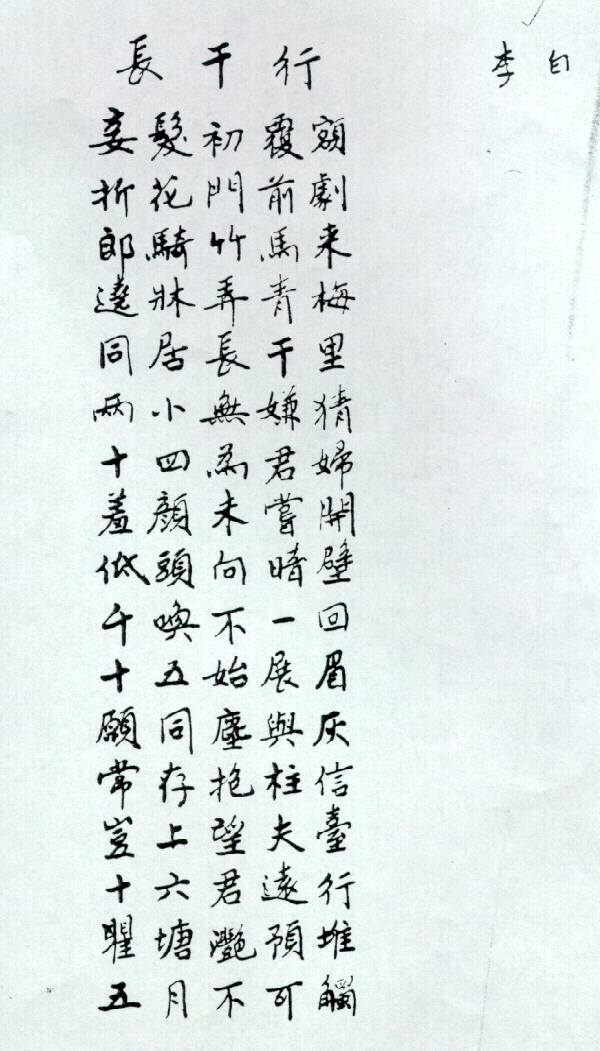 長干行 李白
妾髮初覆額
折花門前劇
郎騎竹馬来
遶牀弄青梅
同居長干里
兩小無嫌猜
十四為君婦
羞顏未嘗開
低頭向暗壁
千喚不一回
十五始展眉
願同塵與灰
常存抱柱信
豈上望夫臺
十六君遠行
瞿塘灩預堆
五月不可觸